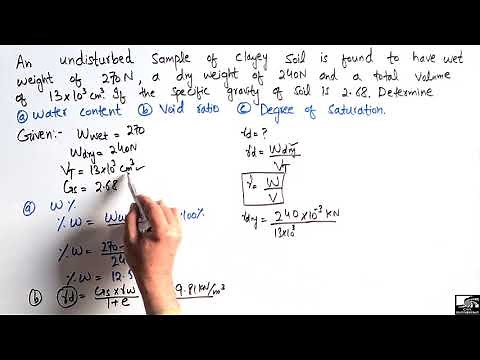 An undisturbed Sample of Clayey Soil is found to have wet
weight of 270N, a dry weight of 240N and a total Volume
of 13x10³ cm³. If the specific gravity of soil is 2.68. Determine
ⓐ Water content ⓑ Void ratio ⓒ Degree of Saturation.
Given:- Wwet = 270
Wdry = 240N
VT = 13x10³ cm³
Gs = 2.68
ⓐ W%
%W = 100%
%W = 270-
%W = 12.5
ⓑ γd = Gsxγw / 1+e
9.81 KN/m³
γd = ?
γd = Wdry / VT
γ = W / V
γdry = 240x10⁻³ KN / 13x10³